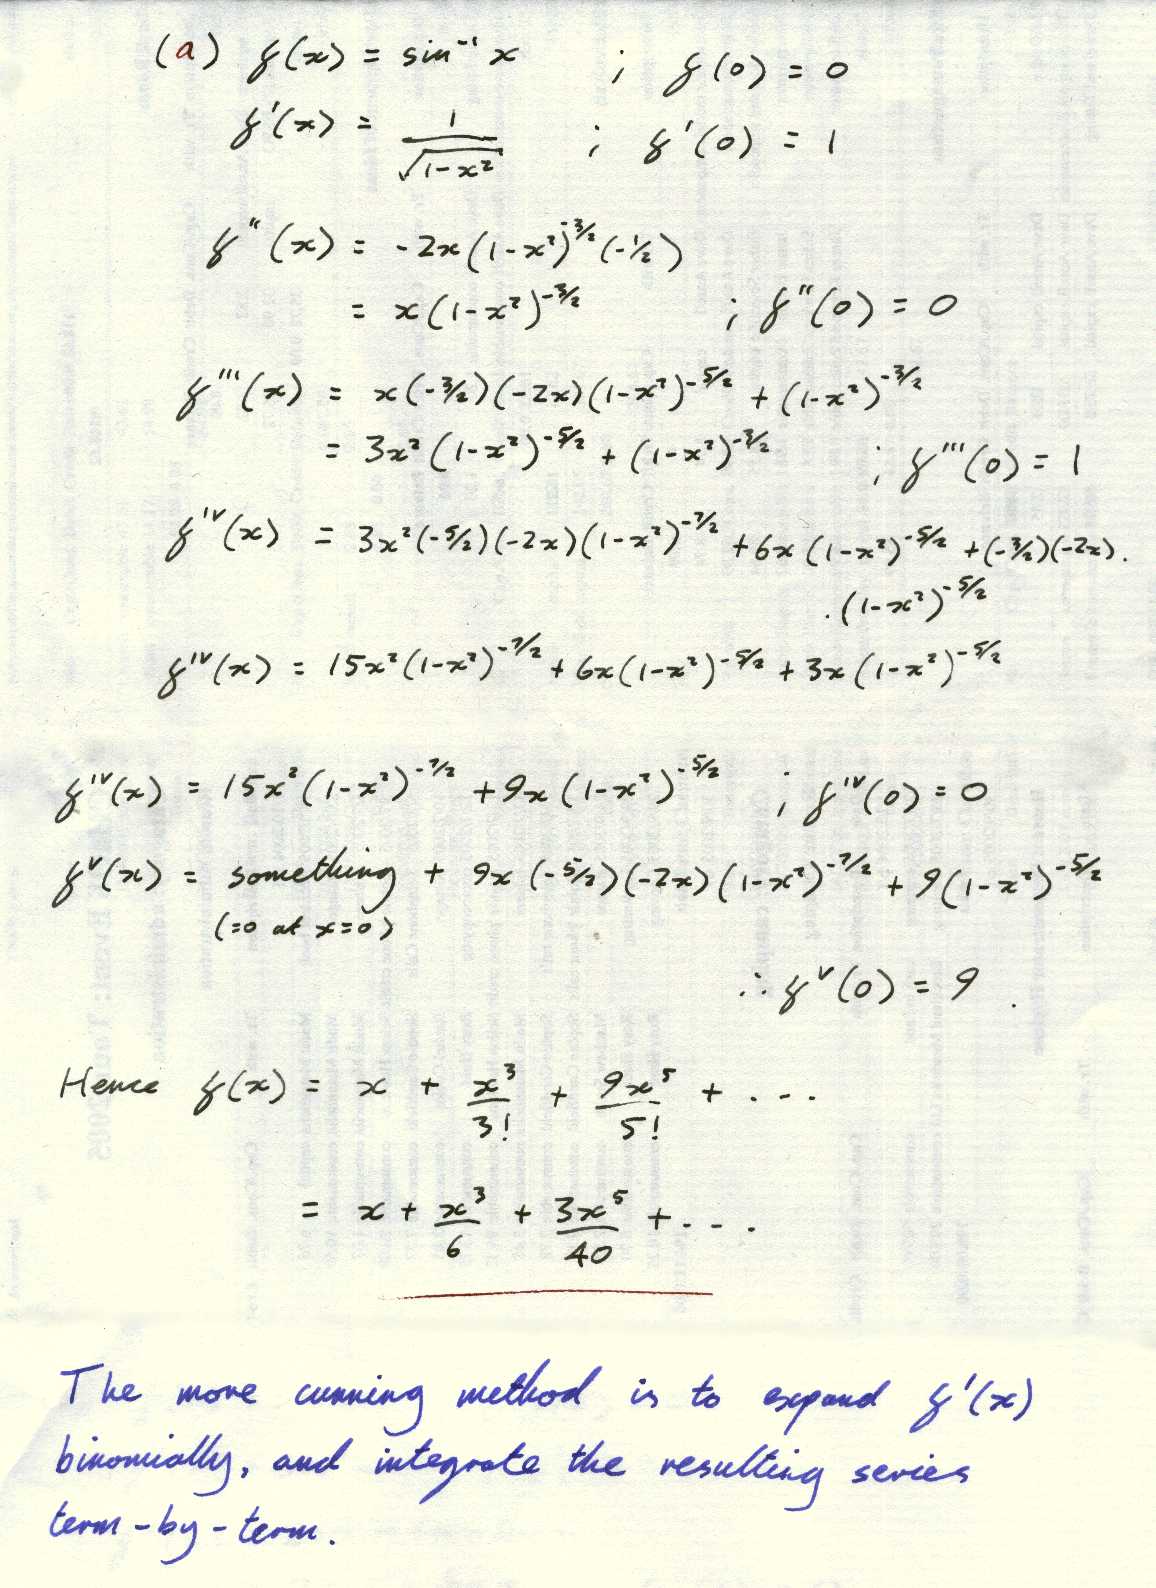 (a) f(x) = sin⁻¹ x ; f(0) = 0
f'(x) = 1/√(1-x²) ; f'(0) = 1
f''(x) = -2x(1-x²)^(-3/2) (-1/2)
= x(1-x²)^(-3/2) ; f''(0) = 0
f'''(x) = x(-3/2)(-2x)(1-x²)^(-5/2) + (1-x²)^(-3/2)
= 3x²(1-x²)^(-5/2) + (1-x²)^(-3/2) ; f'''(0) = 1
f^IV(x) = 3x²(-5/2)(-2x)(1-x²)^(-7/2) + 6x(1-x²)^(-5/2) + (-3/2)(-2x).
.(1-x²)^(-5/2)
f^IV(x) = 15x²(1-x²)^(-7/2) + 6x(1-x²)^(-5/2) + 3x(1-x²)^(-5/2)
f^IV(x) = 15x²(1-x²)^(-7/2) + 9x(1-x²)^(-5/2) ; f^IV(0) = 0
f^V(x) = something + 9x(-5/2)(-2x)(1-x²)^(-7/2) + 9(1-x²)^(-5/2)
(=0 at x=0)
∴ f^V(0) = 9 .
Hence f(x) = x + x³/3! + 9x⁵/5! + ...
= x + x³/6 + 3x⁵/40 + ...
The more cunning method is to expand f'(x)
binomially, and integrate the resulting series
term-by-term.